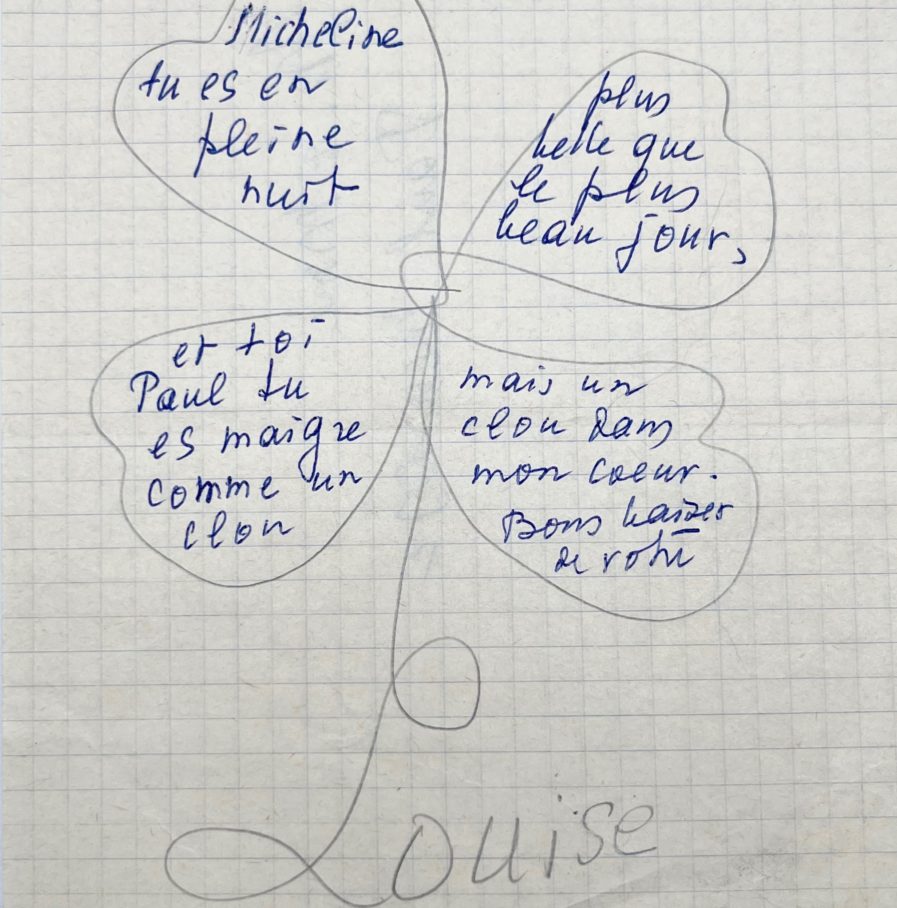 Micheline
tu es en
pleine
nuit
plus
belle que
le plus
beau jour,
et toi
Paul tu
es maigre
comme un
clou
mais un
clou dans
mon coeur.
Bons baiser
de robi
Louise